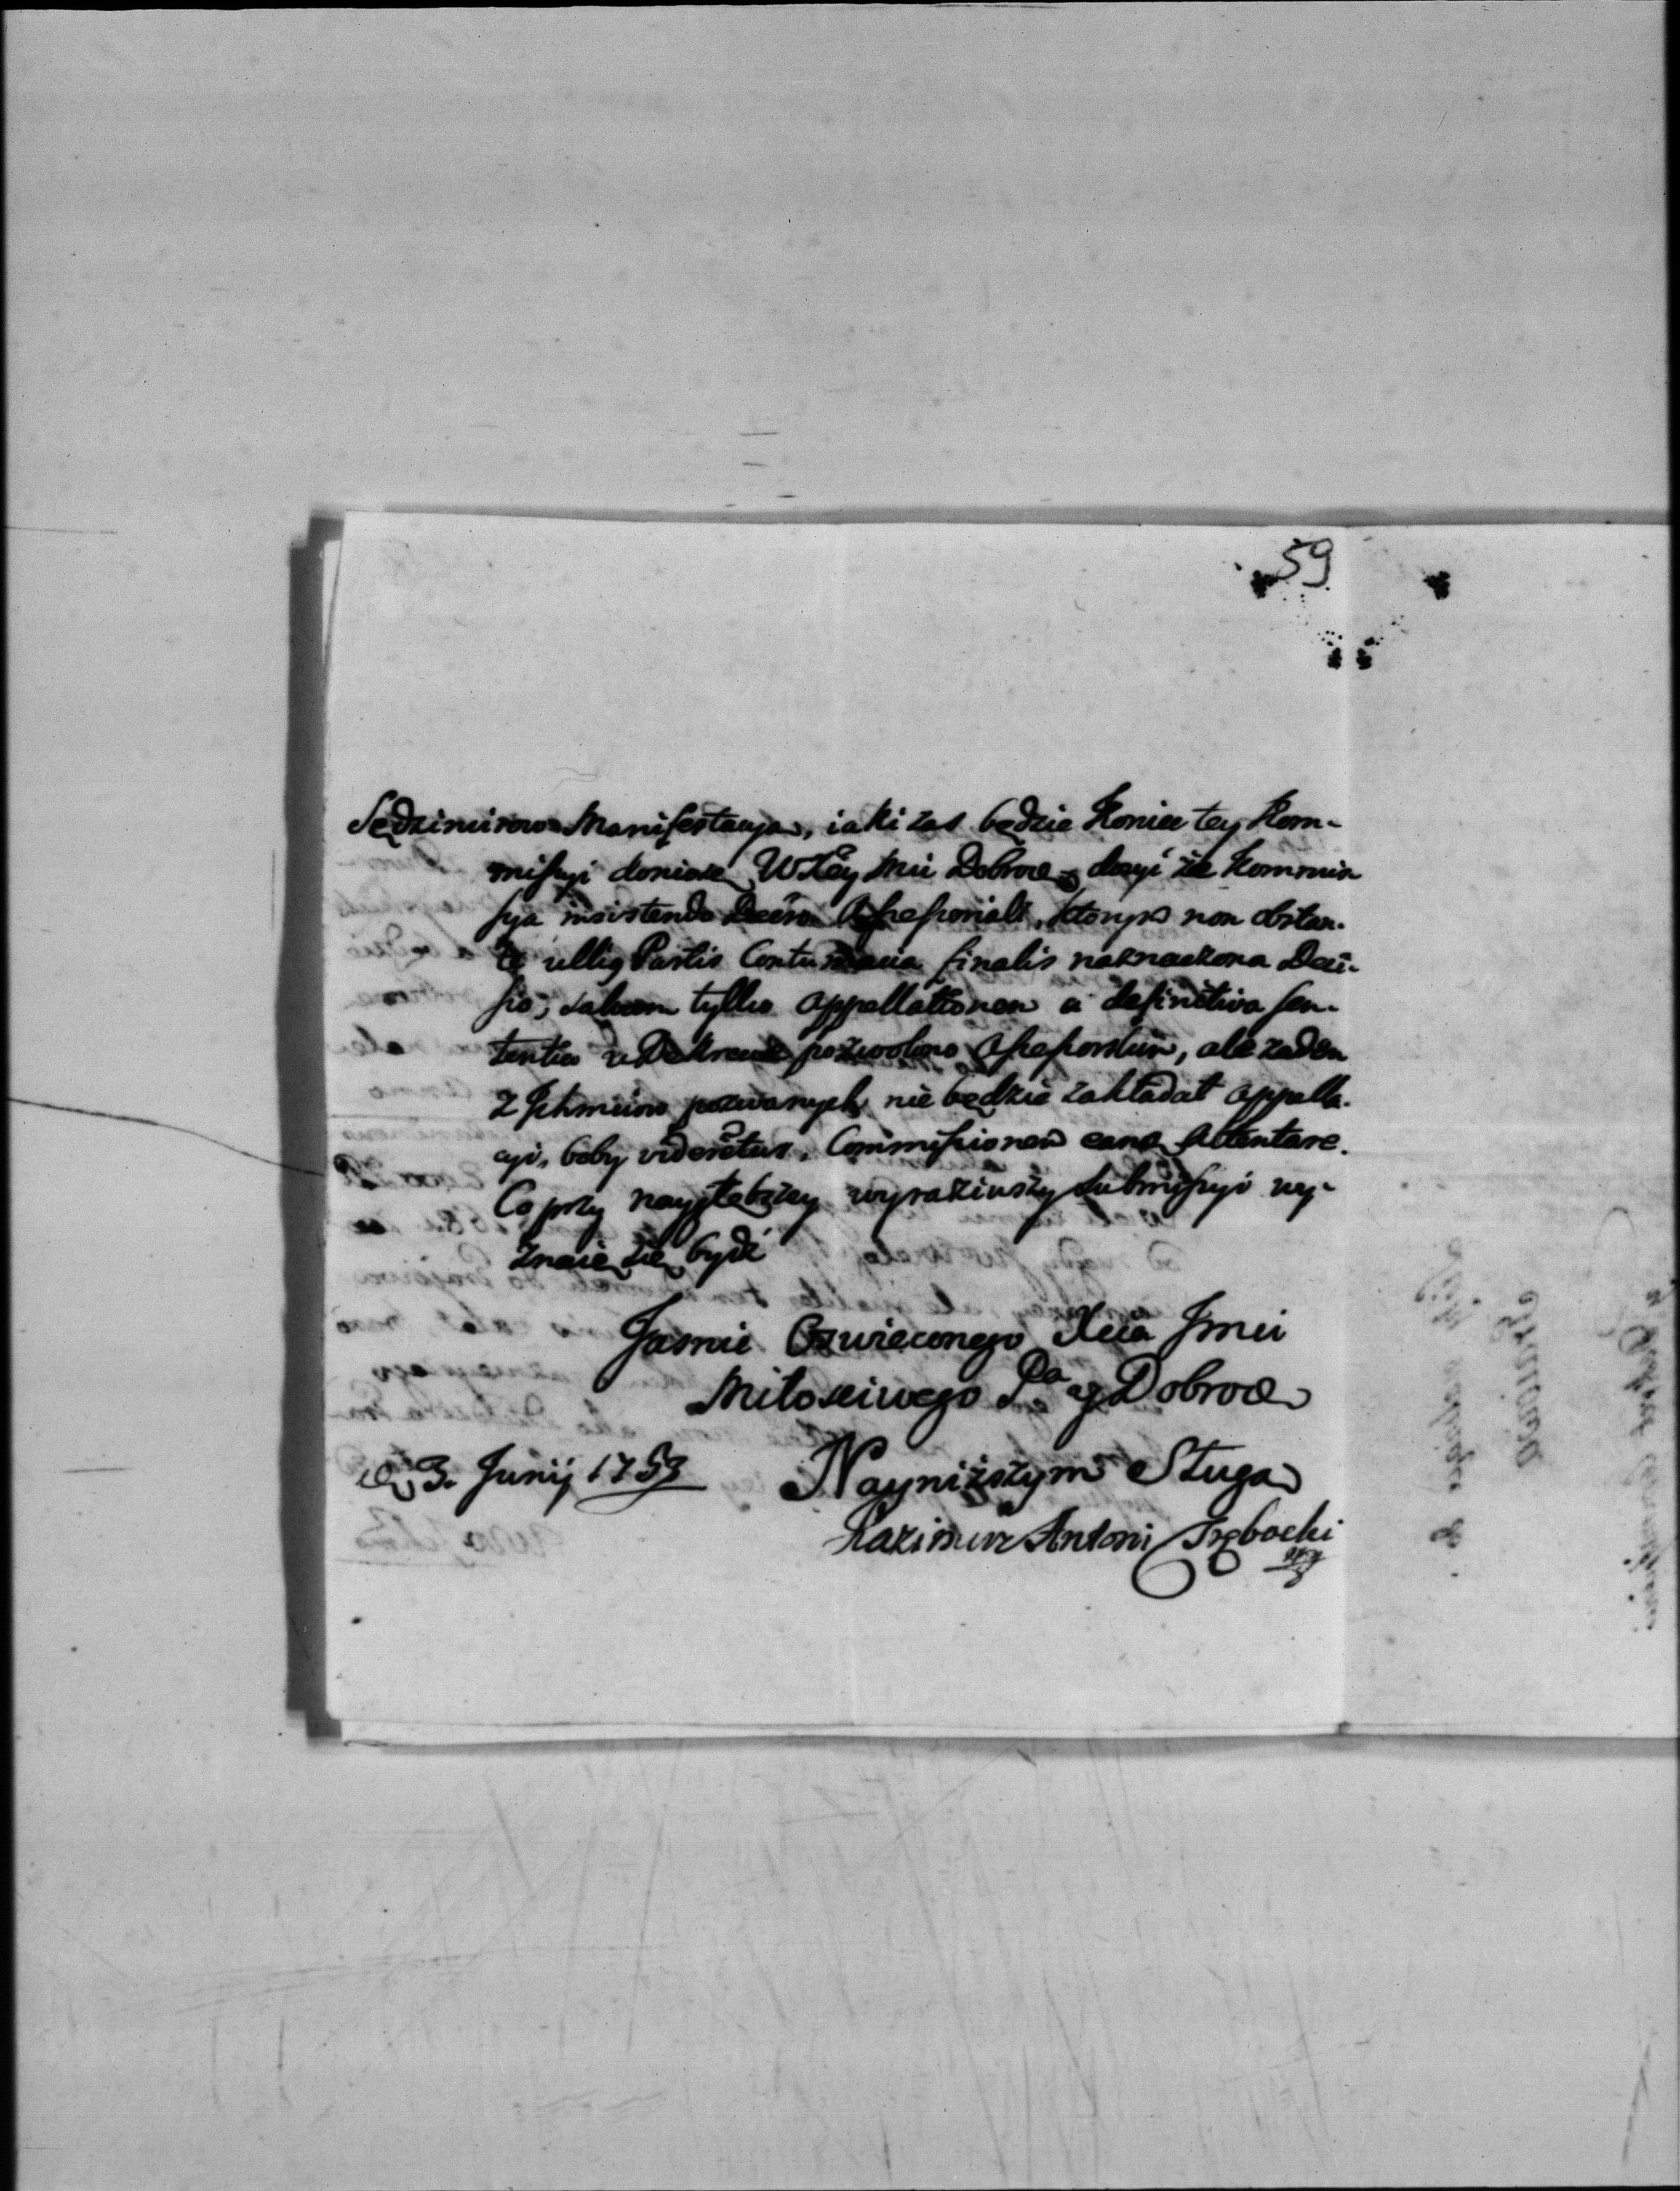 59
Sędzimirowa Manifestacya, iaki zas będzie Koniec tey Kom-
missyi doniosę WXcey Mci Dobrod. decyi że Kommis
sya insistendo Assessorialt, ktorym non obstan-
te ullig Partis Contumacia finalis naznaczona Deci-
sio, salvam tylko appellationem a definitiva sen-
tentia w Dekrecie pozwolono Assessorskim, ale zaden
z Ichmciow pozwanych nie będzie zakładał appella-
cyi, boby videretur, Commissionem eama Attentare.
Co przy naygłębszey wyraziwszy submissyi wy-
znaię się bydź
Jasnie Oswieconego Xcia Jmci
Miłosciwego Pa y Dobrod
d. 3. Junij 1753 Nayniższym Sługą
Kazimierz Antoni Trębocki
mp